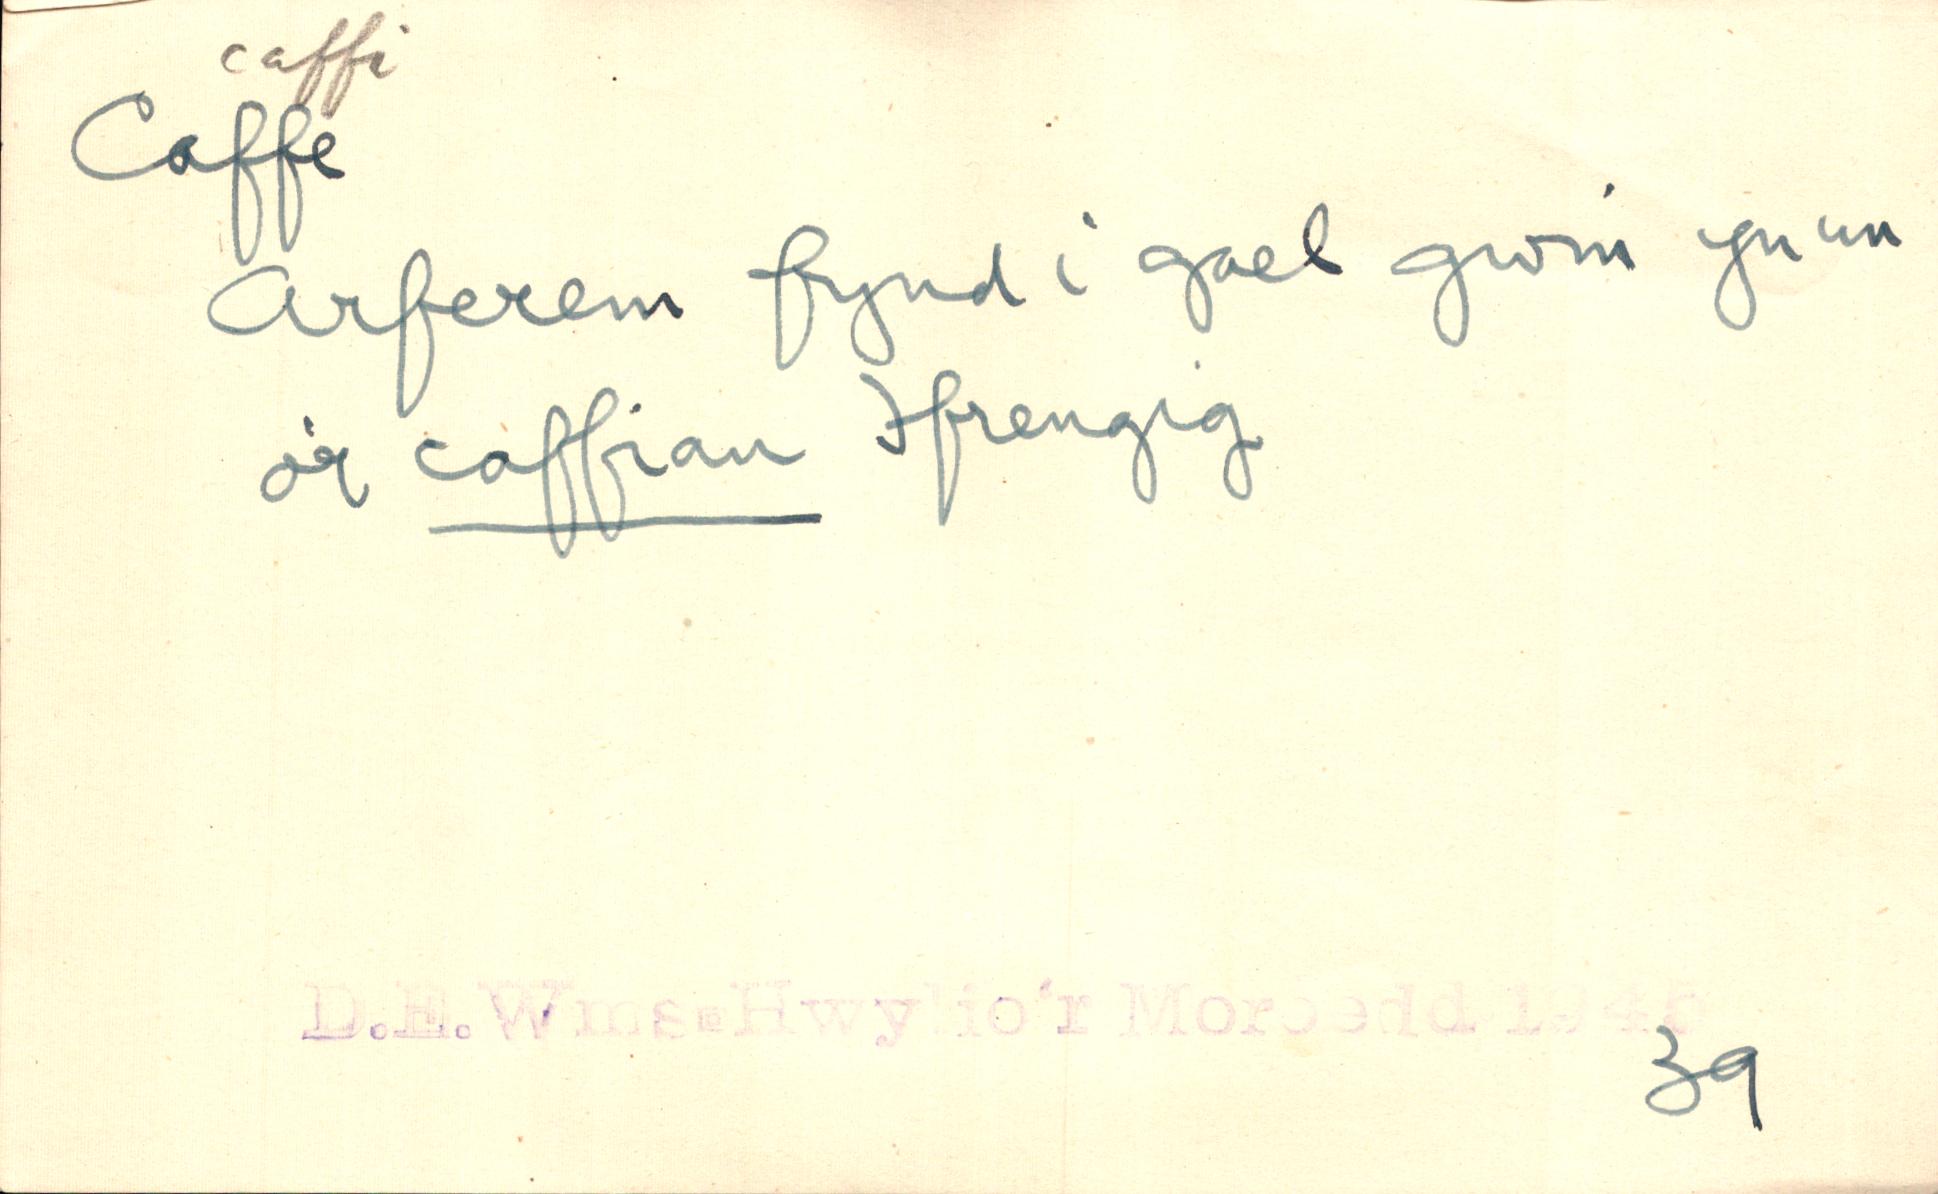 caffi
Caffe
Arferem fynd i gael gwin yn un
o'r caffiau Ffrengig
D.E.Wms-Hwylio'r Moroedd 1945
39